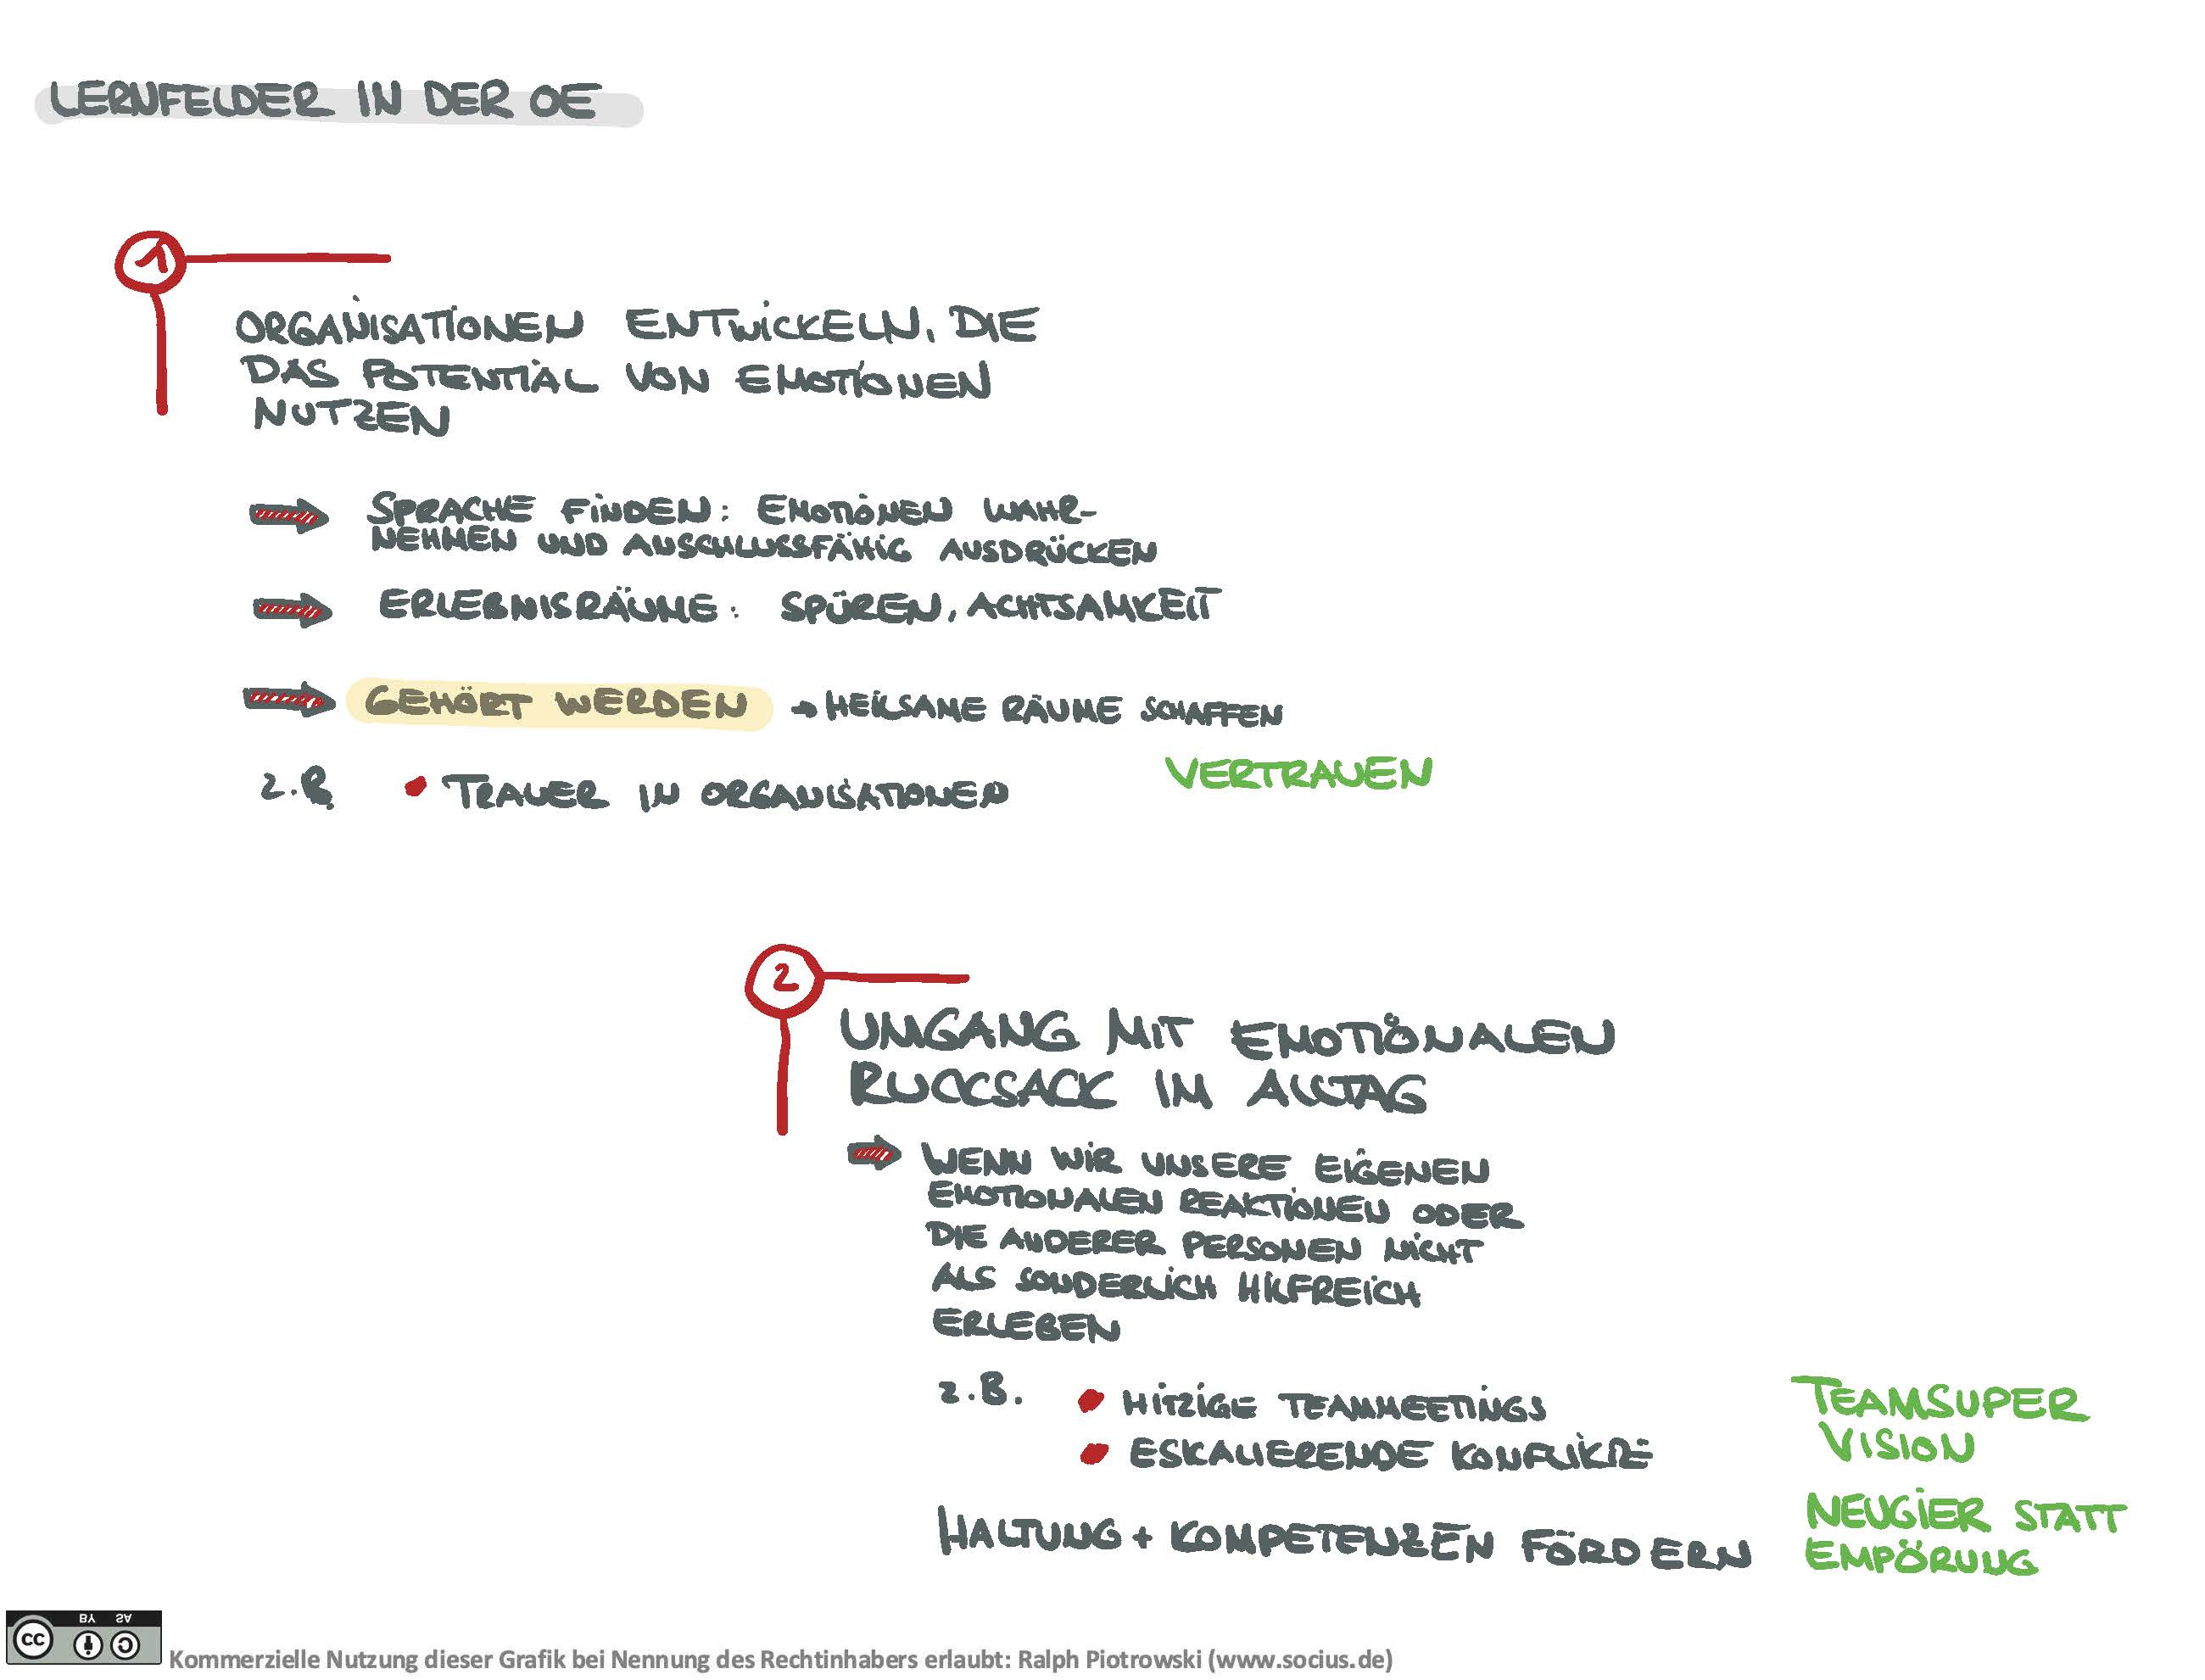 LERNFELDER IN DER OE
1
ORGANISATIONEN ENTWICKELN, DIE
DAS POTENTIAL VON EMOTIONEN
NUTZEN
SPRACHE FINDEN: EMOTIONEN WAHR-
NEHMEN UND ANSCHLUSSFÄHIG AUSDRÜCKEN
ERLEBNISRÄUME: SPÜREN, ACHTSAMKEIT
GEHÖRT WERDEN → HEILSAME RÄUME SCHAFFEN
VERTRAUEN
z.B. • TRAUER IN ORGANISATIONEN
2
UMGANG MIT EMOTIONALEN
RUCKSACK IM ALLTAG
WENN WIR UNSERE EIGENEN
EMOTIONALEN REAKTIONEN ODER
DIE ANDERER PERSONEN NICHT
ALS SONDERLICH HILFREICH
ERLEBEN
z.B. • HITZIGE TEAMMEETINGS
• ESKALIERENDE KONFLIKTE
TEAMSUPER
VISION
HALTUNG + KOMPETENZEN FÖRDERN
NEUGIER STATT
EMPÖRUNG
CC BY SA
Kommerzielle Nutzung dieser Grafik bei Nennung des Rechtinhabers erlaubt: Ralph Piotrowski (www.socius.de)